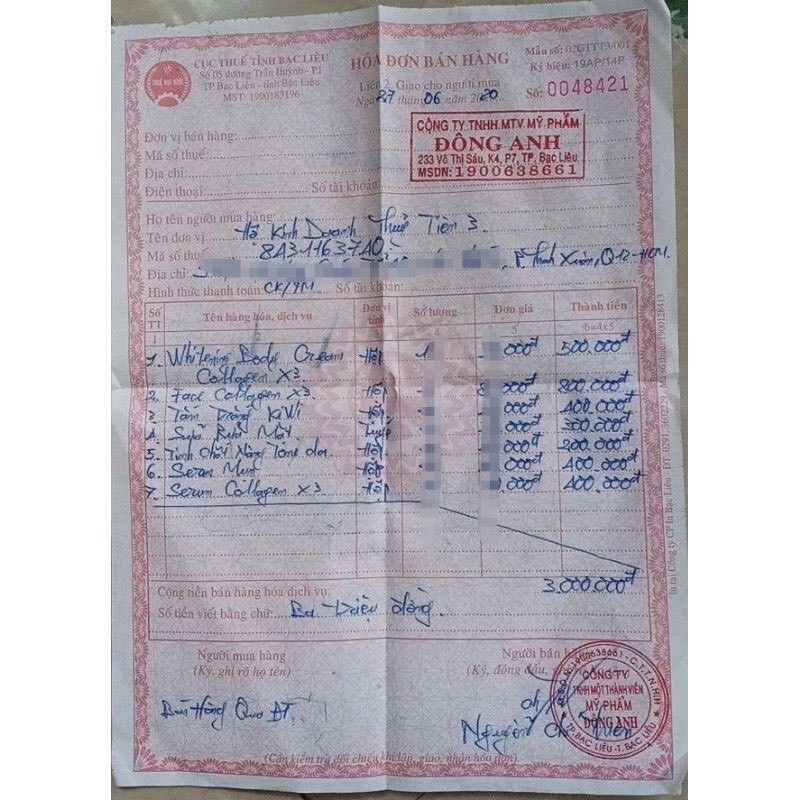 CỤC THUẾ TỈNH BẠC LIÊU
Số 05 đường Trần Huỳnh - P.1
TP Bạc Liêu - tỉnh Bạc Liêu
MST: 1900183196
THUẾ NHÀ NƯỚC
HÓA ĐƠN BÁN HÀNG
Liên 2: Giao cho người mua
Ngày 27 tháng 06 năm 2020
Mẫu số: 02GTTT3/001
Ký hiệu: 19AP/14P
Số: 0048421
CÔNG TY TNHH MTV MỸ PHẨM
ĐÔNG ANH
233 Võ Thị Sáu, K4, P7, TP. Bạc Liêu
MSDN: 1900638661
Đơn vị bán hàng:
Mã số thuế:
Địa chỉ:
Điện thoại: Số tài khoản:
Họ tên người mua hàng:
Tên đơn vị Hộ Kinh Doanh Thuỷ Tiên 3
Mã số thuế 8431163740
Địa chỉ: P. Thạnh Xuân, Q12-HCM.
Hình thức thanh toán: CK/TM Số tài khoản:
Số TT Tên hàng hóa, dịch vụ Đơn vị tính Số lượng Đơn giá Thành tiền
1 4 5 6=4x5
1. Whitening Body Cream Hộp 1 000đ 500.000đ
Collagen X3
2. Face Collagen X3 Hộp 000đ 800.000đ
3 Tắm Trắng KiWi Hộp 000đ 400.000đ
4 Sữa Rửa Mặt Tuýp 000đ 300.000đ
5. Tinh Chất Nâng Tông da Hộp 000đ 200.000đ
6. Serum Mụn Hộp 000đ 400.000đ
7. Serum Collagen X3 Hộp 000đ 400.000đ
Cộng tiền bán hàng hóa dịch vụ: 3.000.000đ
Số tiền viết bằng chữ: Ba triệu đồng.
Người mua hàng
(Ký, ghi rõ họ tên)
Bán Hàng Qua ĐT.
Người bán hàng
(Ký, đóng dấu,
Nguyễn
CÔNG TY
TNHH MỘT THÀNH VIÊN
MỸ PHẨM
ĐÔNG ANH
TP. BẠC LIÊU - T. BẠC LIÊU
(Cần kiểm tra đối chiếu khi lập, giao, nhận hóa đơn)
In tại Công ty CP In Bạc Liêu - ĐT: 0291.3602729 - Mã số thuế: 1900128413